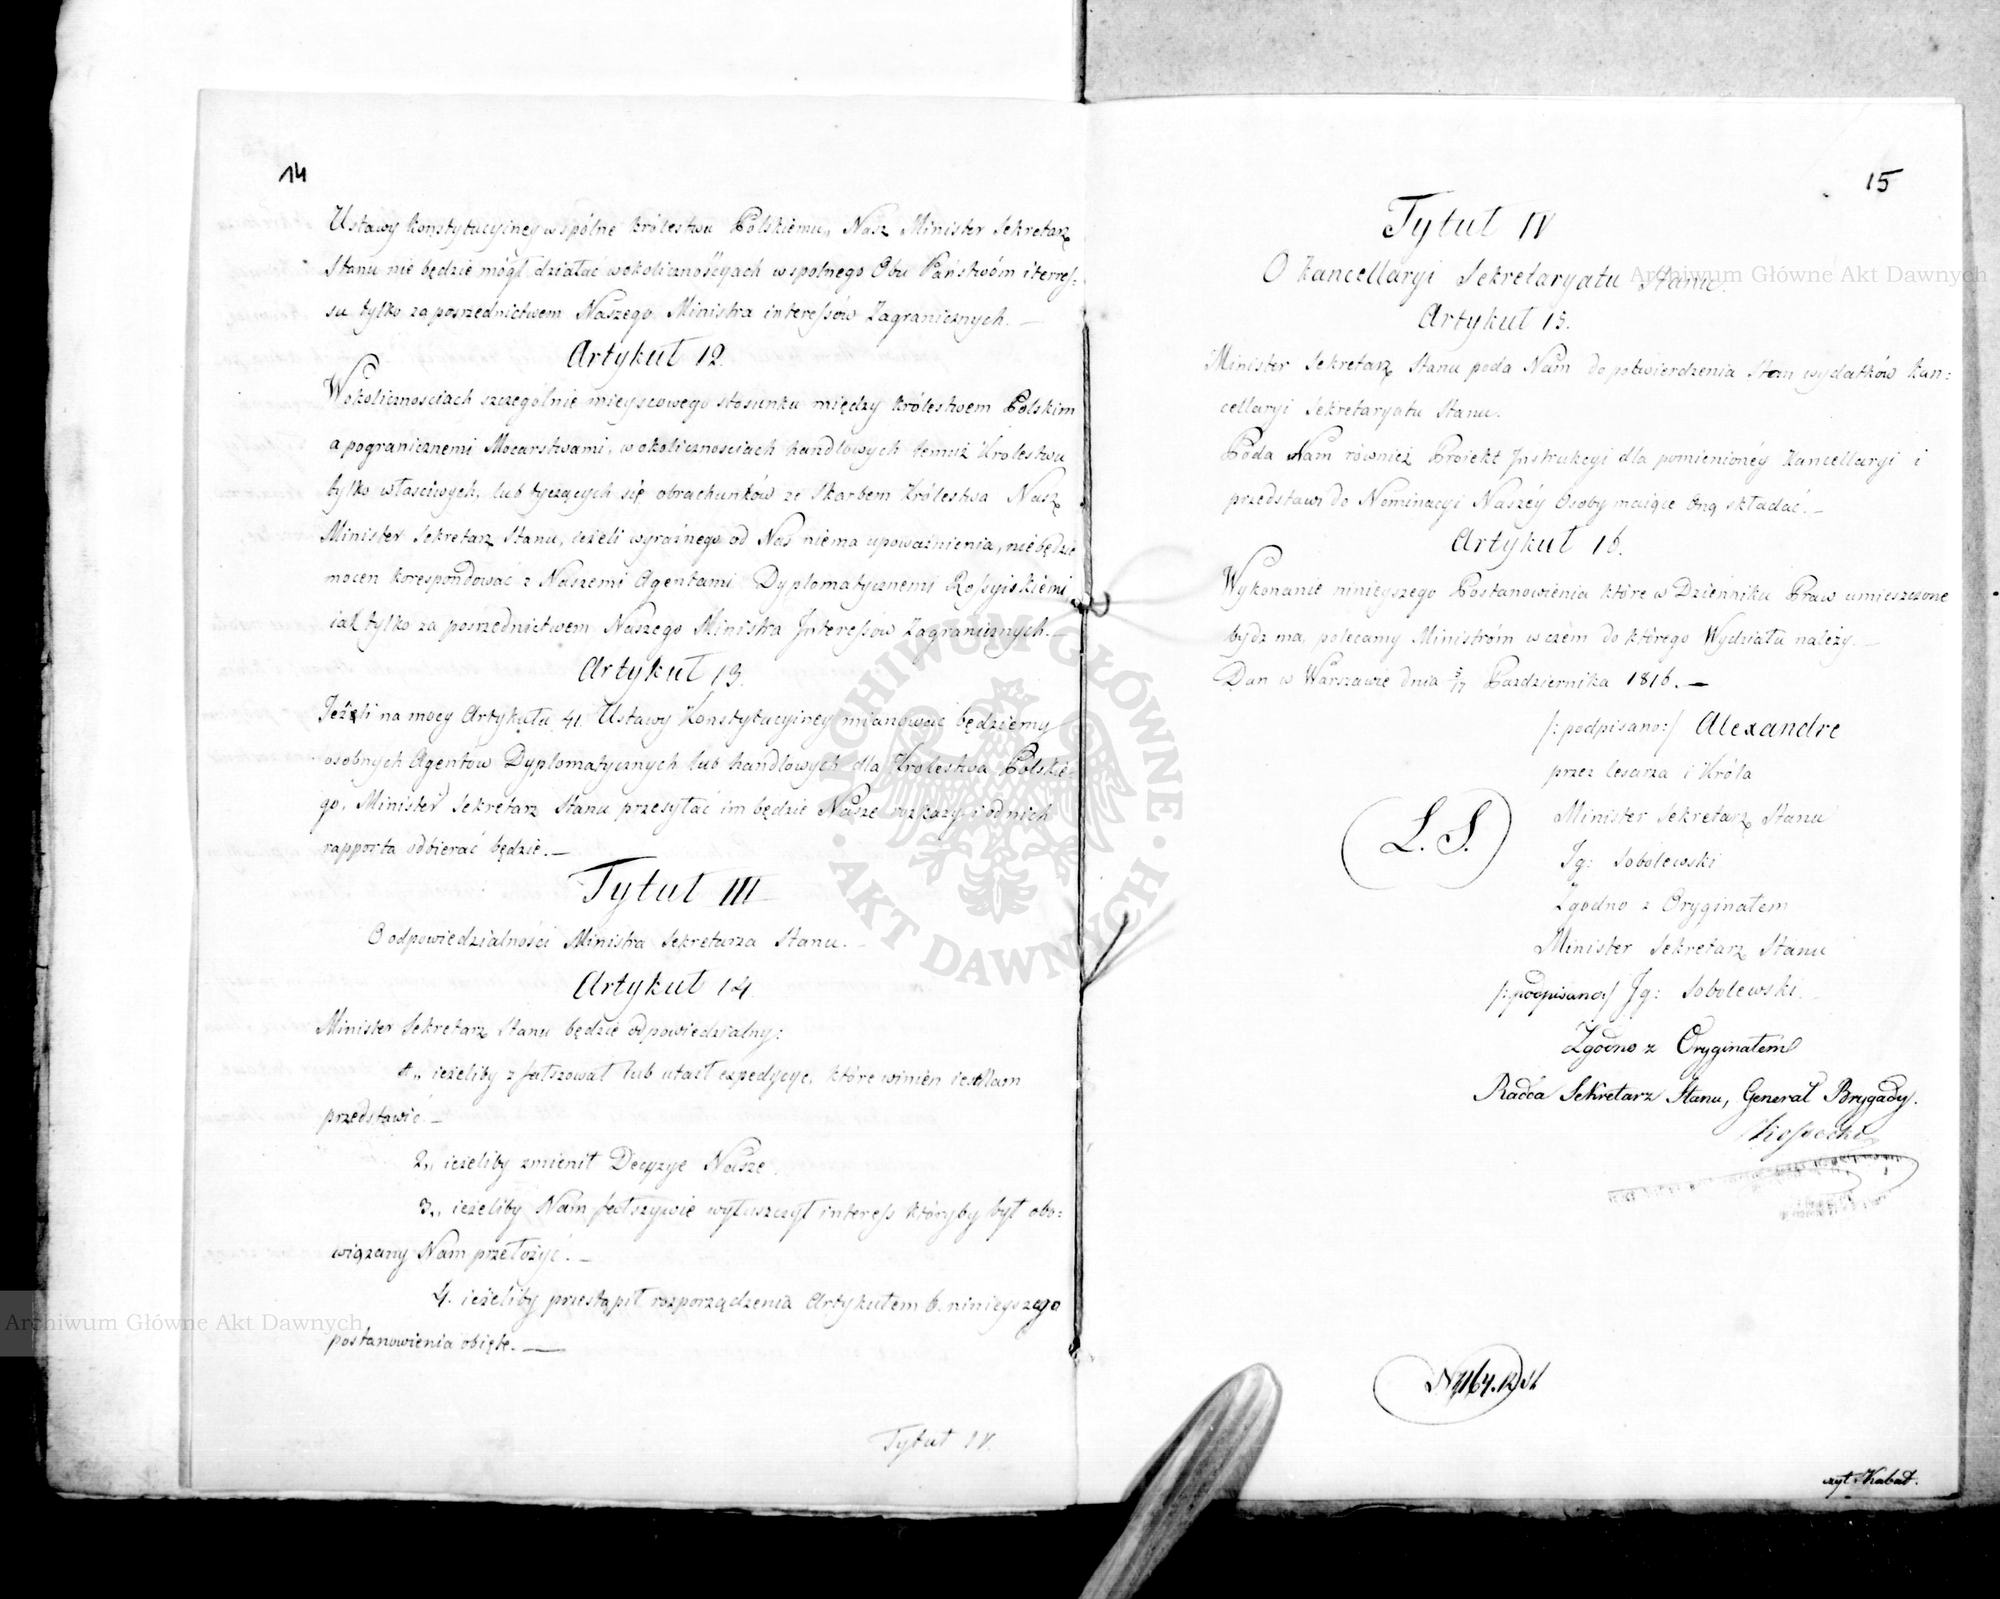 14
Ustawy Konstytucyiney wspólne Królestwu Polskiemu, Nasz Minister Sekretarz
Stanu nie będzie mógł działać w okolicznościach wspolnego Obu Państwóm interes-
su tylko za pośrzednictwem Naszego Ministra interessów Zagranicznych. —
Artykuł 12.
W okolicznosciach szczególnie mieyscowego stosunku między Królestwem Polskim
a pogranicznemi Mocarstwami, w okolicznosciach handlowych temuż Krolestwu
tylko własciwych, lub tyczących się obrachunków ze Skarbem Królestwa Nasz
Minister Sekretarz Stanu, ieżeli wyraźnego od Nas niema upoważnienia, nie będzie
mocen korespondować z Naszemi Agentami Dyplomatycznemi Rossyiskiemi
iak tylko za posrzednictwem Naszego Ministra Interessow Zagranicznych. —
Artykuł 13.
Jeżeli na mocy Artykułu 41. Ustawy Konstytucyiney mianować będziemy
osobnych Agentow Dyplomatycznych lub handlowych dla Krolestwa Polskie-
go, Minister Sekretarz Stanu przesyłać im będzie Nasze rozkazy i od nich
rapporta odbierać będzie. —
Tytuł III
O odpowiedzialności Ministra Sekretarza Stanu. —
Artykuł 14.
Minister Sekretarz Stanu będzie odpowiedzialny:
1,, ieżeliby z fałszował lub utaił expedycye, które winien iest Nam
przedstawić. —
2,, ieżeliby zmienił Decyzye Nasze.
3,, ieżeliby Nam fałszywie wyłuszczył interess któryby był obo:
wiązany Nam przełożyć. —
4. ieżeliby przestąpił rozporządzenia Artykułem 6. ninieyszego
postanowienia obięte. —
Tytuł IV.
15
Tytuł IV
O Kancellaryi Sekretaryatu Stanu.
Artykuł 15.
Minister Sekretarz Stanu poda Nam do potwierdzenia Stan wydatków Kan:
cellaryi Sekretaryatu Stanu.
Poda Nam również Proiekt Jnstrukcyi dla pomienionéy Kancellaryi i
przedstawi do Nominacyi Naszéy Osoby maiące Oną składać. —
Artykuł 16.
Wykonanie ninieyszego Postanowienia które w Dzienniku Praw umieszczone
bydz ma, polecamy Ministróm w czém do którego Wydziału należy. —
Dan w Warszawie dnia 5/17 Pazdziernika 1816. —
/: podpisano :/ Alexandre
przez Cesarza i Króla
Minister Sekretarz Stanu
L. S.
Jg: Sobolewski
Zgodno z Oryginałem
Minister Sekretarz Stanu
/: podpisano :/ Jg: Sobolewski.
Zgodno z Oryginałem
Radca Sekretarz Stanu, Generał Brygady.
czyt. Kabat.
Archiwum Główne Akt Dawnych
Archiwum Główne Akt Dawnych
ARCHIWUM GŁÓWNE · AKT DAWNYCH ·